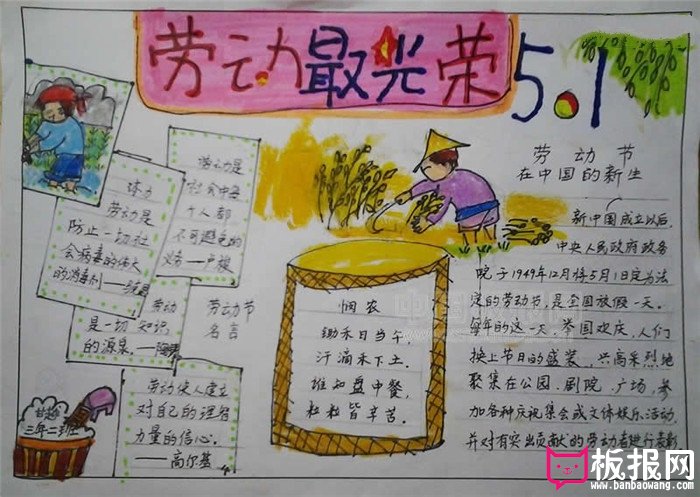 劳动最光荣
5.1
劳动是
社会中每
个人都
不可避免的
义务—卢梭
体力
劳动是
防止一切社
会病毒的伟大
的消毒剂—
劳动
是一切知识
的源泉。—陶铸
劳动节
名言
劳动使人建立
对自己的理智
力量的信心。
—高尔基
三年二班
悯农
锄禾日当午,
汗滴禾下土。
谁知盘中餐,
粒粒皆辛苦。
劳动节
在中国的新生
新中国成立以后,
中央人民政府政务
院于1949年12月将5月1日定为法
定的劳动节,是全国放假一天。
每年的这一天,举国欢庆,人们
换上节日的盛装,兴高采烈地
聚集在公园、剧院、广场,参
加各种庆祝集会或文体娱乐活动,
并对有突出贡献的劳动者进行表彰
板报网
www.banbaowang.com